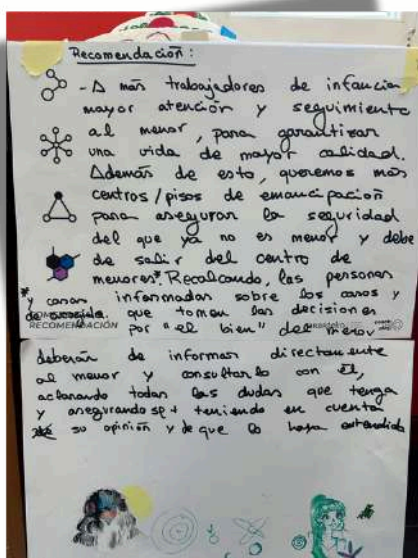 Recomendación:
- A más trabajadores de infancia
mayor atención y seguimiento
al menor, para garantizar
una vida de mayor calidad.
Además de esto, queremos más
centros/pisos de emancipación
para asegurar la seguridad
del que ya no es menor y debe
de salir del centro de
menores*. Recalcando, las personas
*y casas informadas sobre los casos y
de acogida. que tomen las decisiones
RECOMENDACIÓN por "el bien" del menor
deberán de informar directamente
al menor y consultarlo con él,
aclarando todas las dudas que tenga
y asegurando sp+ teniendo en cuenta
su opinión y de que lo haya entendido